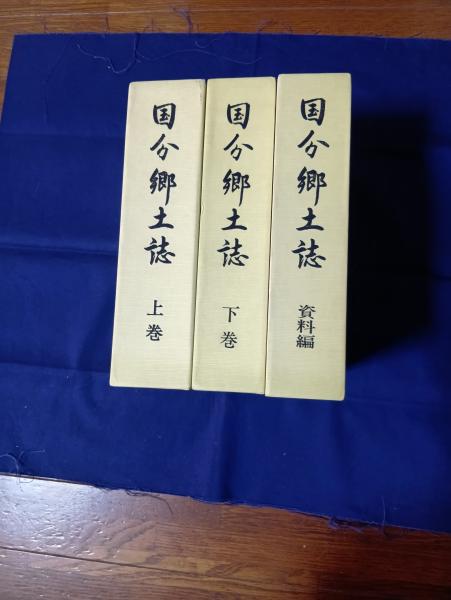 国分郷土誌
上巻
国分郷土誌
下巻
国分郷土誌
資料編